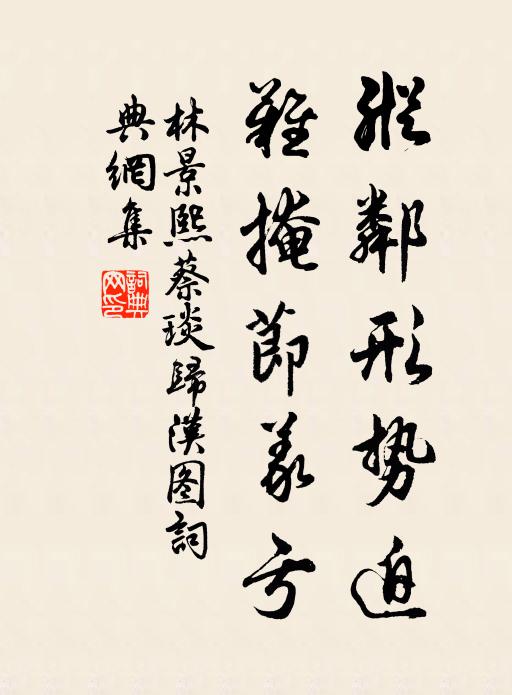 縱鄰形势迫
難掩節義亏
林景熙蔡琰歸漢图詞
典網集
詞典網印